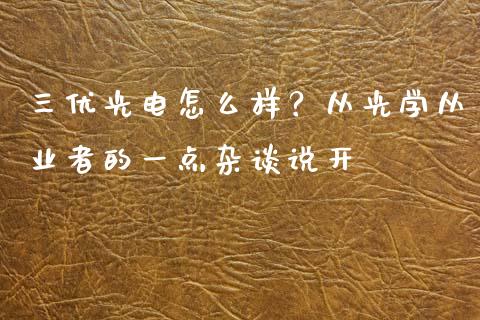 三优光电怎么样？从光学从
业者的一点杂谈说开